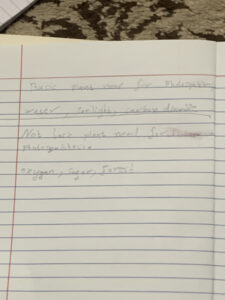 Basic plant need for Photosynthesis
water, sunlight, carbon dioxide
Not basic plant need for
Photosynthesis
oxygen, sugar,